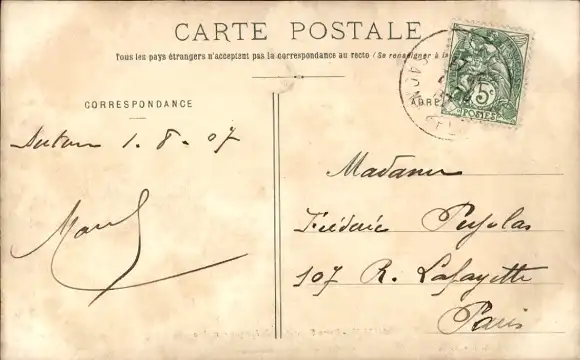 CARTE POSTALE
Tous les pays étrangers n'acceptent pas la correspondance au recto (Se renseigner à la
CORRESPONDANCE
ADRE
5c
POSTES
1. 8. 07
Madame
Frédéric
107 R. Lafayette
Paris